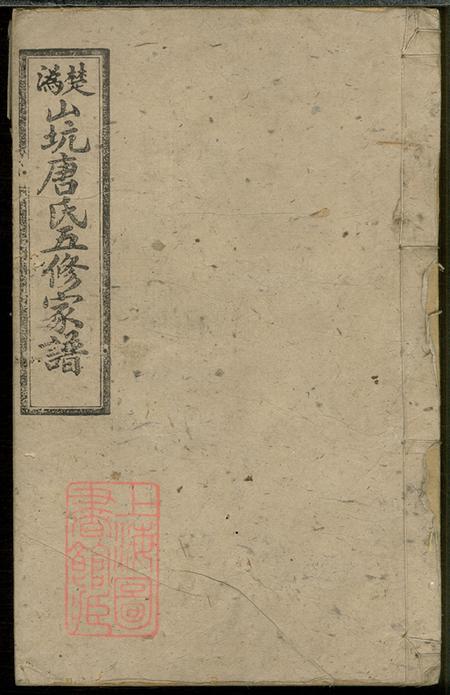 楚溈
山坑唐氏五修家譜
上海圖
書館藏